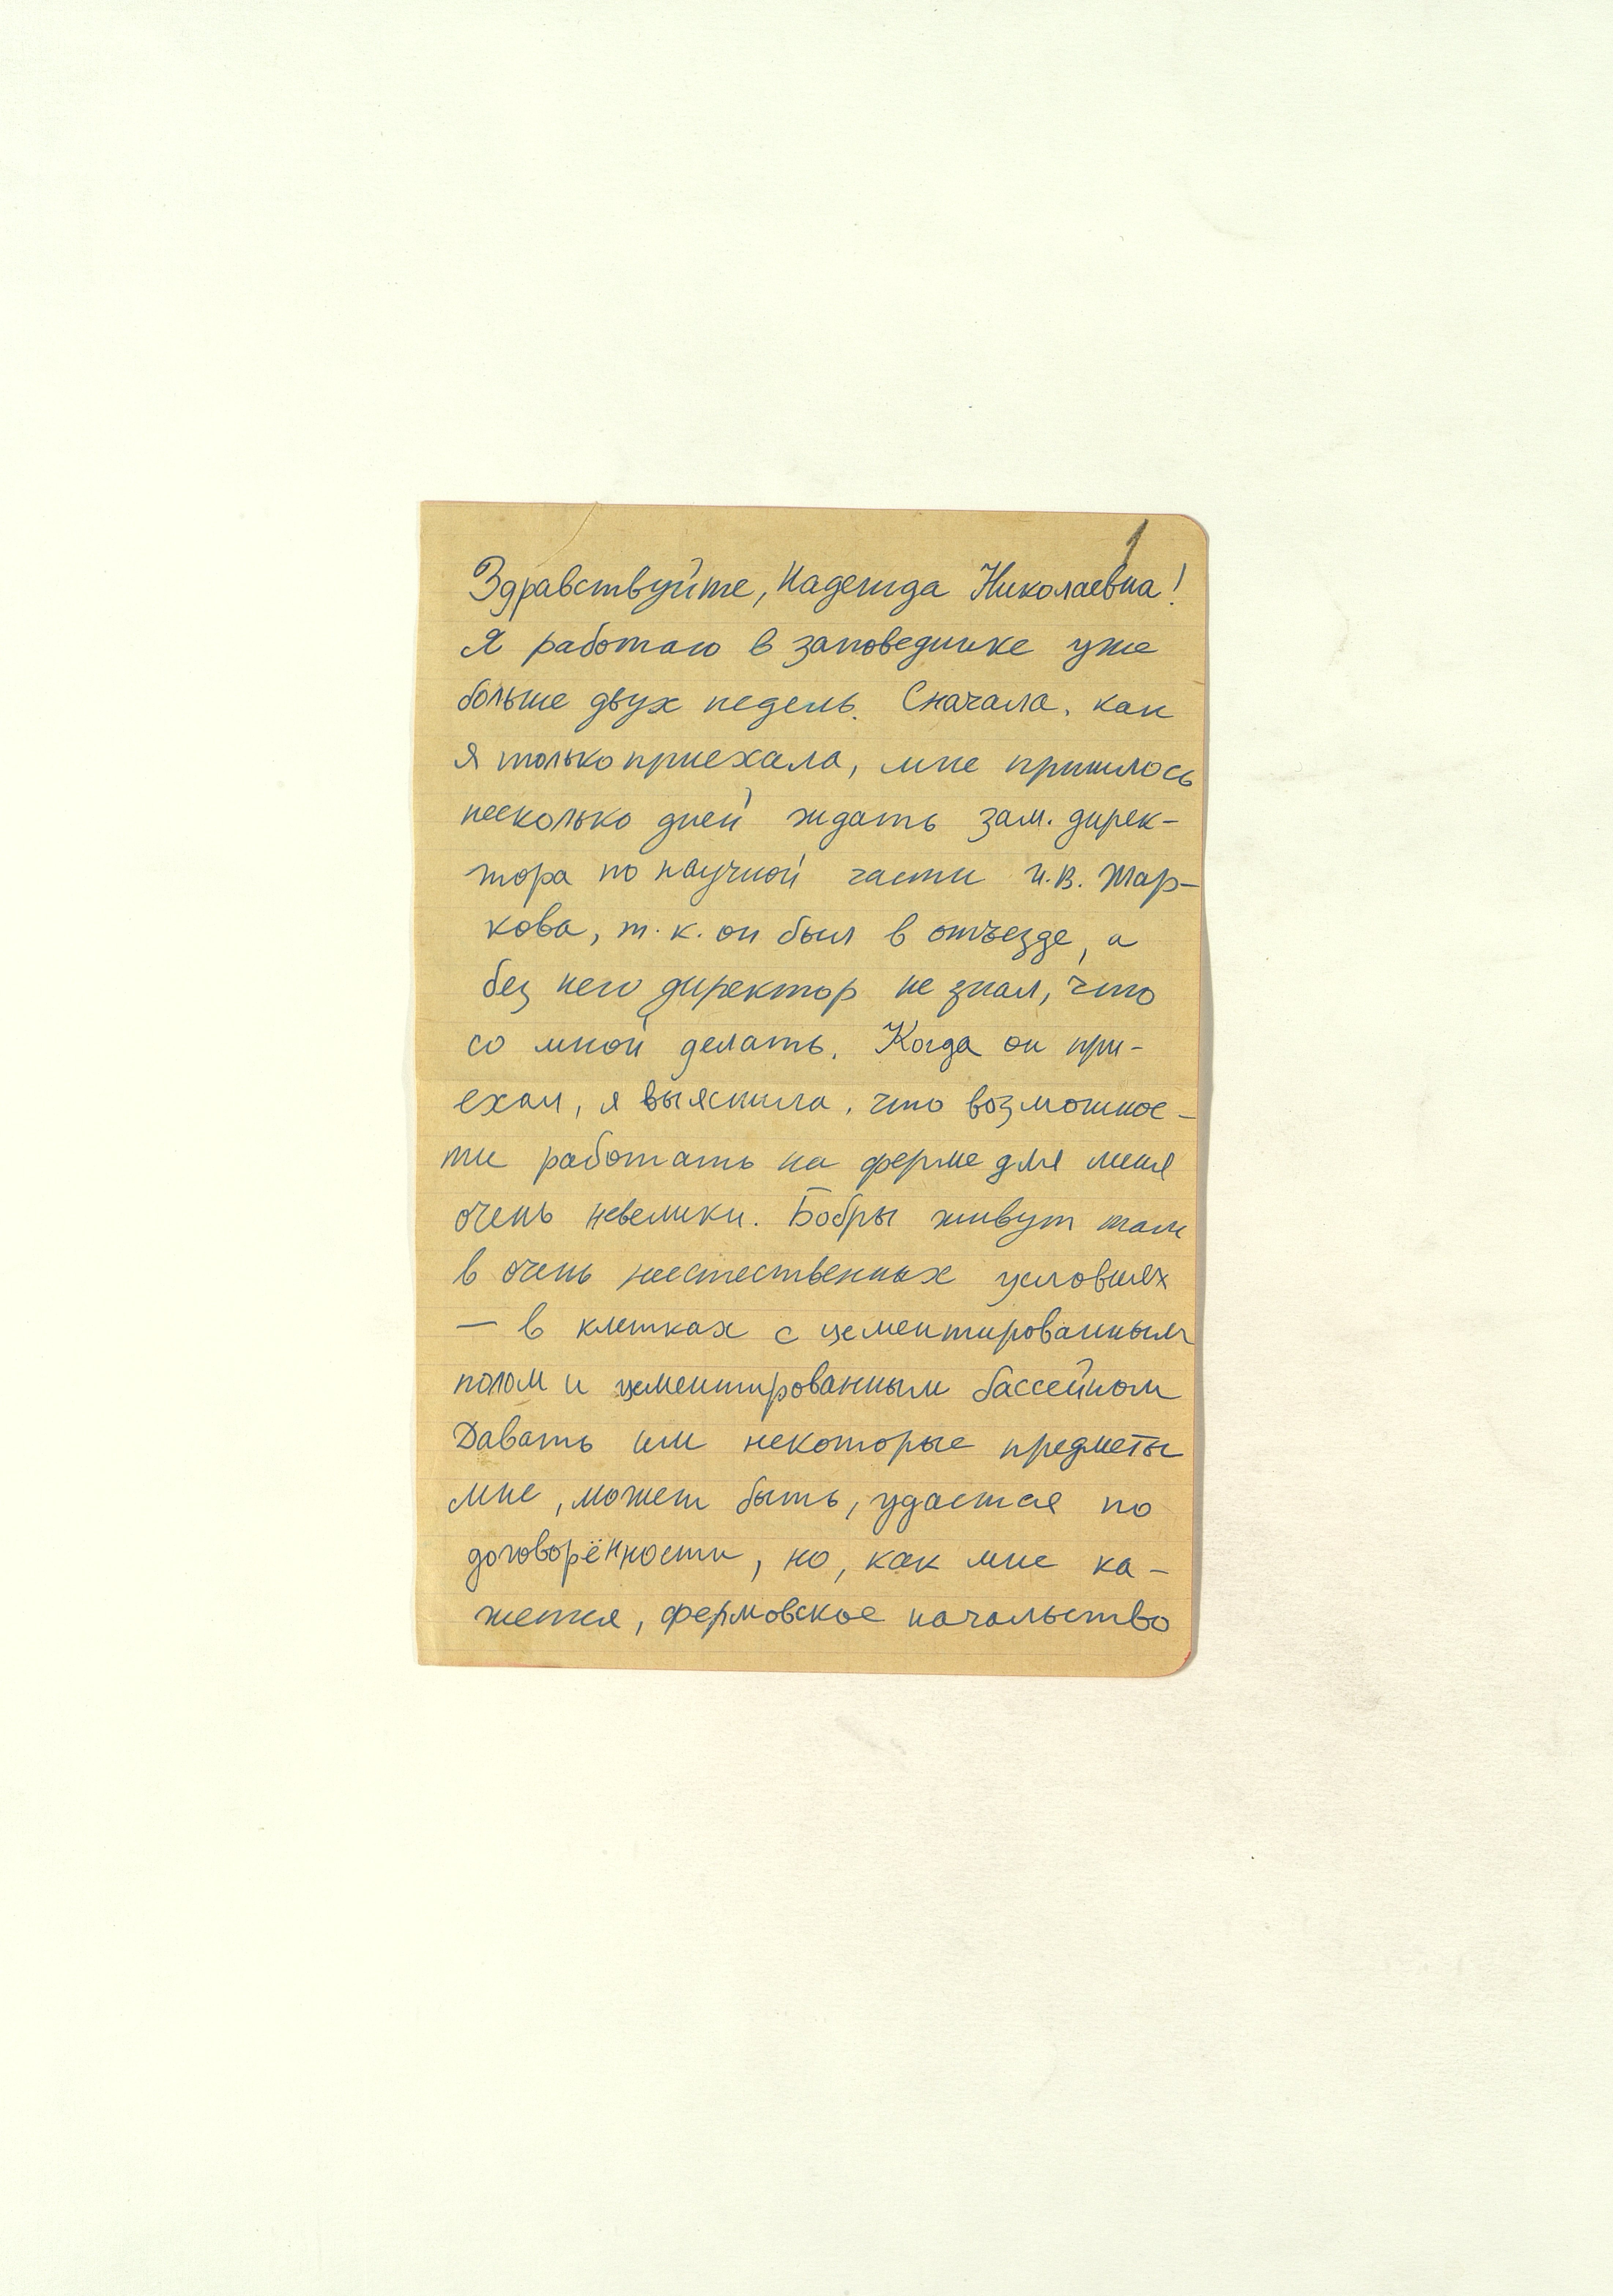 1
Здравствуйте, Надежда Николаевна!
Я работаю в заповеднике уже
больше двух недель. Сначала, как
я только приехала, мне пришлось
несколько дней ждать зам. дирек-
тора по научной части И.В. Жар-
кова, т.к. он был в отъезде, а
без него директор не знал, что
со мной делать. Когда он при-
ехал, я выяснила, что возможнос-
ти работать на ферме для меня
очень невелики. Бобры живут там
в очень неестественных условиях
— в клетках с цементированным
полом и цементированным бассейном
Давать им некоторые предметы
мне, может быть, удастся по
договорённости, но, как мне ка-
жется, фермовское начальство